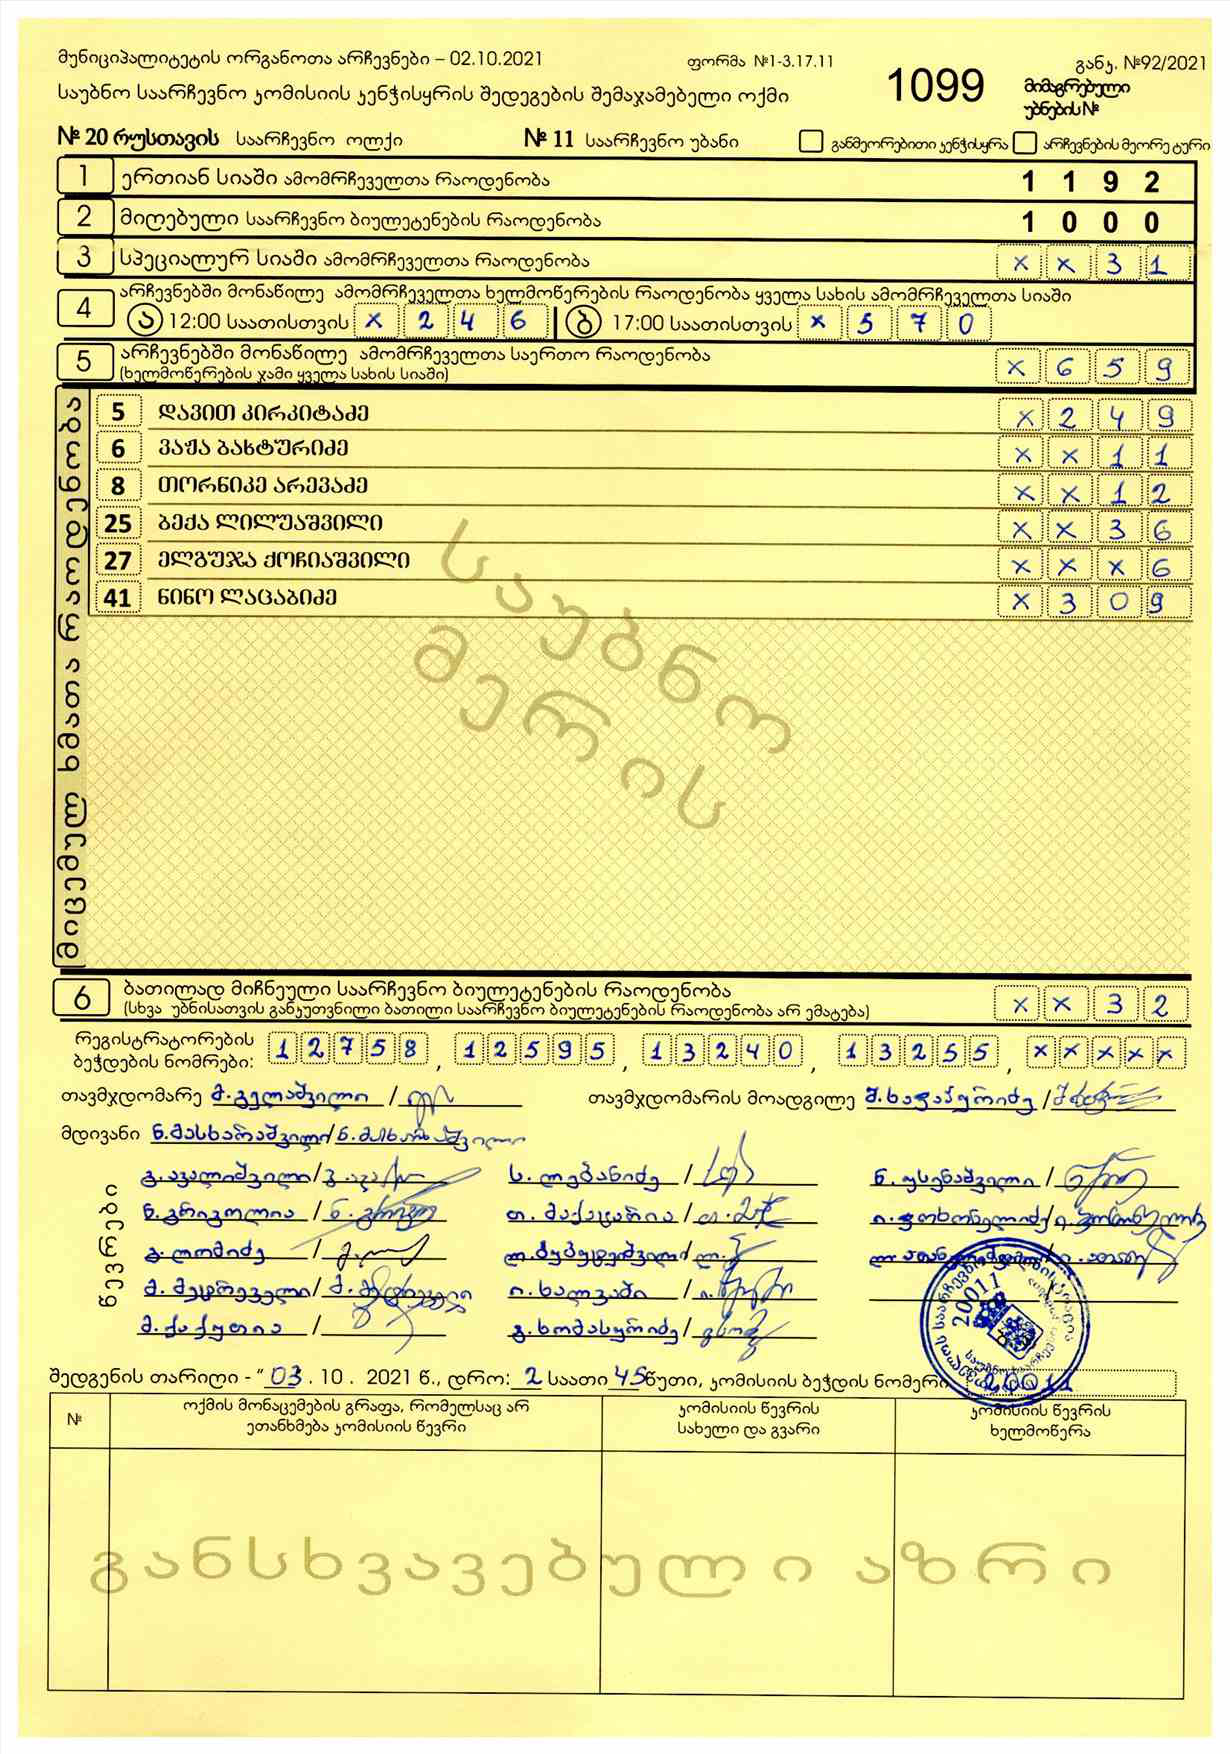 მუნიციპალიტეტის ორგანოთა არჩევნები – 02.10.2021 ფორმა №1-3.17.11 განკ. №92/2021
საუბნო საარჩევნო კომისიის კენჭისყრის შედეგების შემაჯამებელი ოქმი 1099 მიმაგრებული უბნების №
№ 20 რუსთავის საარჩევნო ოლქი № 11 საარჩევნო უბანი განმეორებითი კენჭისყრა არჩევნების მეორე ტური
1 ერთიან სიაში ამომრჩეველთა რაოდენობა 1 1 9 2
2 მიღებული საარჩევნო ბიულეტენების რაოდენობა 1 0 0 0
3 სპეციალურ სიაში ამომრჩეველთა რაოდენობა x x 3 1
4 არჩევნებში მონაწილე ამომრჩეველთა ხელმოწერების რაოდენობა ყველა სახის ამომრჩეველთა სიაში
ა 12:00 საათისთვის x 2 4 6 ბ 17:00 საათისთვის x 5 7 0
5 არჩევნებში მონაწილე ამომრჩეველთა საერთო რაოდენობა x 6 5 9
(ხელმოწერების ჯამი ყველა სახის სიაში)
მიცემულ ხმათა რაოდენობა
5 დავით კირკიტაძე x 2 4 9
6 ვაჟა ბახტურიძე x x 1 1
8 თორნიკე არევაძე x x 1 2
25 ბექა ლილუაშვილი x x 3 6
27 ელგუჯა ქოჩიაშვილი x x x 6
41 ნინო ლაცაბიძე x 3 0 9
საუბნო
მერის
6 ბათილად მიჩნეული საარჩევნო ბიულეტენების რაოდენობა x x 3 2
(სხვა უბნისათვის განკუთვნილი ბათილი საარჩევნო ბიულეტენების რაოდენობა არ ემატება)
რეგისტრატორების
ბეჭდების ნომრები: 1 2 7 5 8 , 1 2 5 9 5 , 1 3 2 4 0 , 1 3 2 5 5 , x x x x x
თავმჯდომარე მ.გელაშვილი / თავმჯდომარის მოადგილე მ.ხაფაჰურიძე /
მდივანი ნ.მასხარაშვილი/
წევრები
გ.ავალიშვილი/ ს.ლებანიძე / ნ.უსენაშვილი /
ნ.გრიგოლია / თ.მაქაცარია /
გ.ლომიძე /
მ.მედრეველი/ ი.ხალვაში /
მ.ქაქუთია / გ.ხომასურიძე/
შედგენის თარიღი - “ 03 . 10 . 2021 წ., დრო: 2 საათი 45 წუთი, კომისიის ბეჭდის ნომერი 20011
№ ოქმის მონაცემების გრაფა, რომელსაც არ ეთანხმება კომისიის წევრი კომისიის წევრის სახელი და გვარი კომისიის წევრის ხელმოწერა
განსხვავებული აზრი